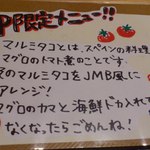 P限定メニュー!!
マルミタコとは、スペインの料理
マグロのトマト煮のことです
のマルミタコをJMB風に
アレンジ!
マグロのカマと海鮮ドカ入れで
なくなったらごめんね!